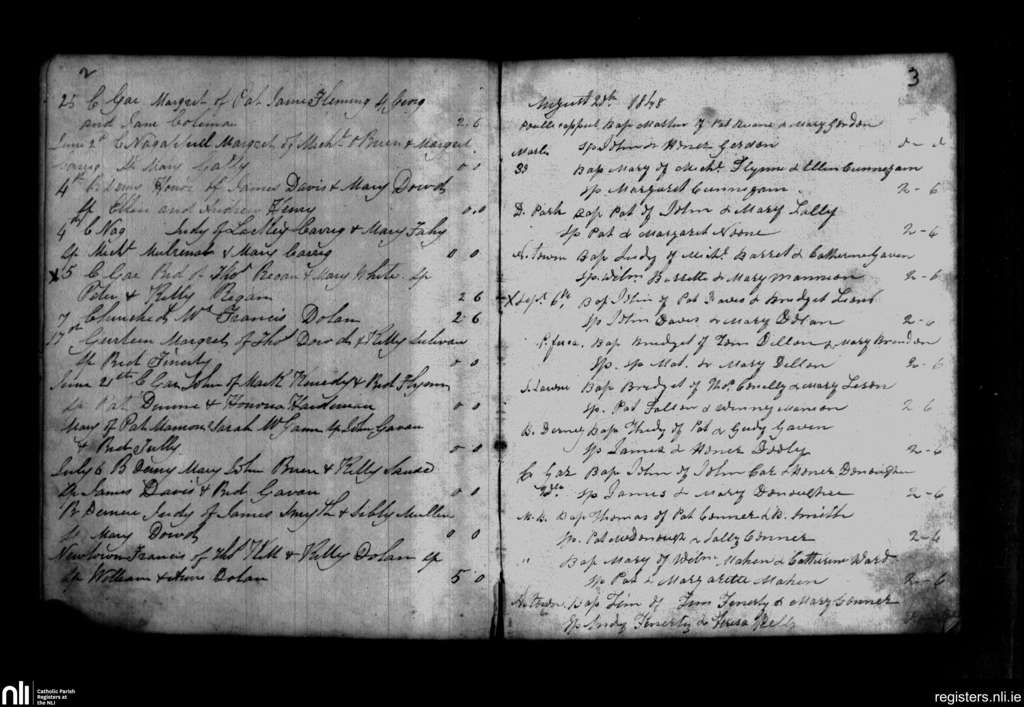 2
25 C Gar Margret of Pat James Fleming Sp Georg
and Jane Coleman 2 6
June 2d C Naga Margret of Michl O Bruen & Margret
Sp Mary Gally 0 0
4th B Derny Honor of James Davis & Mary Dowd
Sp Ellen and Andrew Henry 0.0
4th C Nag Judy of Laccky Caveig & Mary Fahy
Sp Michl Mulrenan & Mary Caveig 0 0
X 5 C Gar Brd of Thos Regan & Mary White Sp
Peter & Kelly Regan 2 6
7 Churched Mrs Francis Dolan 2 6
17th Curteen Margret of Thos Dowd & Kelly Sulivan
Sp Brd Finerty 0 0
June 21st C Gar John of Mark Kenedy & Brd Flynn
Sp Pat Dennie & Honora Hardeman 0 0
Mary of Pat Mannon Sarah McGann Sp John Gavan
& Brd Tully 0 0
July 6 B Derny Mary John Bruen & Kelly
Sp James Davis & Brd Gavan 0 0
B Dernee Judy of James Smyth & Sibby Mullen
Sp Mary Dowd 0 0
Newtown Francis of Thos & Kelly Dolan Sp
Sp William & Anne Dolan 5 0
3
August 20th 1848
Bap Martin of Pat Keane & Mary Gordon
Sp John & Honor Gordon
Bap Mary of Michl Flynn & Ellen Cunnegam
Sp Margaret Cunnigam 2-6
D. Park Bap Pat of John & Mary Lally
Sp Pat & Margaret Noone 2-6
N. Town Bap Judy of Michl Barret & Catherine Gaven
Sp Wilm Barrette & Mary Mannion 2-6
X Sept 6th Bap John of Pat Davis & Bridget Lions
Sp John Davis & Mary Dolan 2-6
Bap Bridget of Tom Dillon & Mary Brandon
Sp. Sp Mat. & Mary Dillon 2-6
Bap Bridget of Thos Conelly & Mary
Sp. Pat Fallon & Winney Manion 2 6
B. Derney Bap Thady of Pat & Judy Gaven
Sp James & Honor Dooly 2-6
C Gar Bap John of John Cox & Honor Donoughue
Sp James & Mary Donoughue 2-6
M.B. Bap Thomas of Pat Conner & B. Smith
Sp. Pat McDonough & Sally Conner 2-6
" Bap Mary of Wilm Mahen & Catherine Ward
Sp Pat & Margarette Mahen 2-6
N. Town Bap Tim of Tim Fenerty & Mary Conner
Sp Andy Fenerty & Teresa Kelly
nli
Catholic Parish
Registers at
the NLI
registers.nli.ie